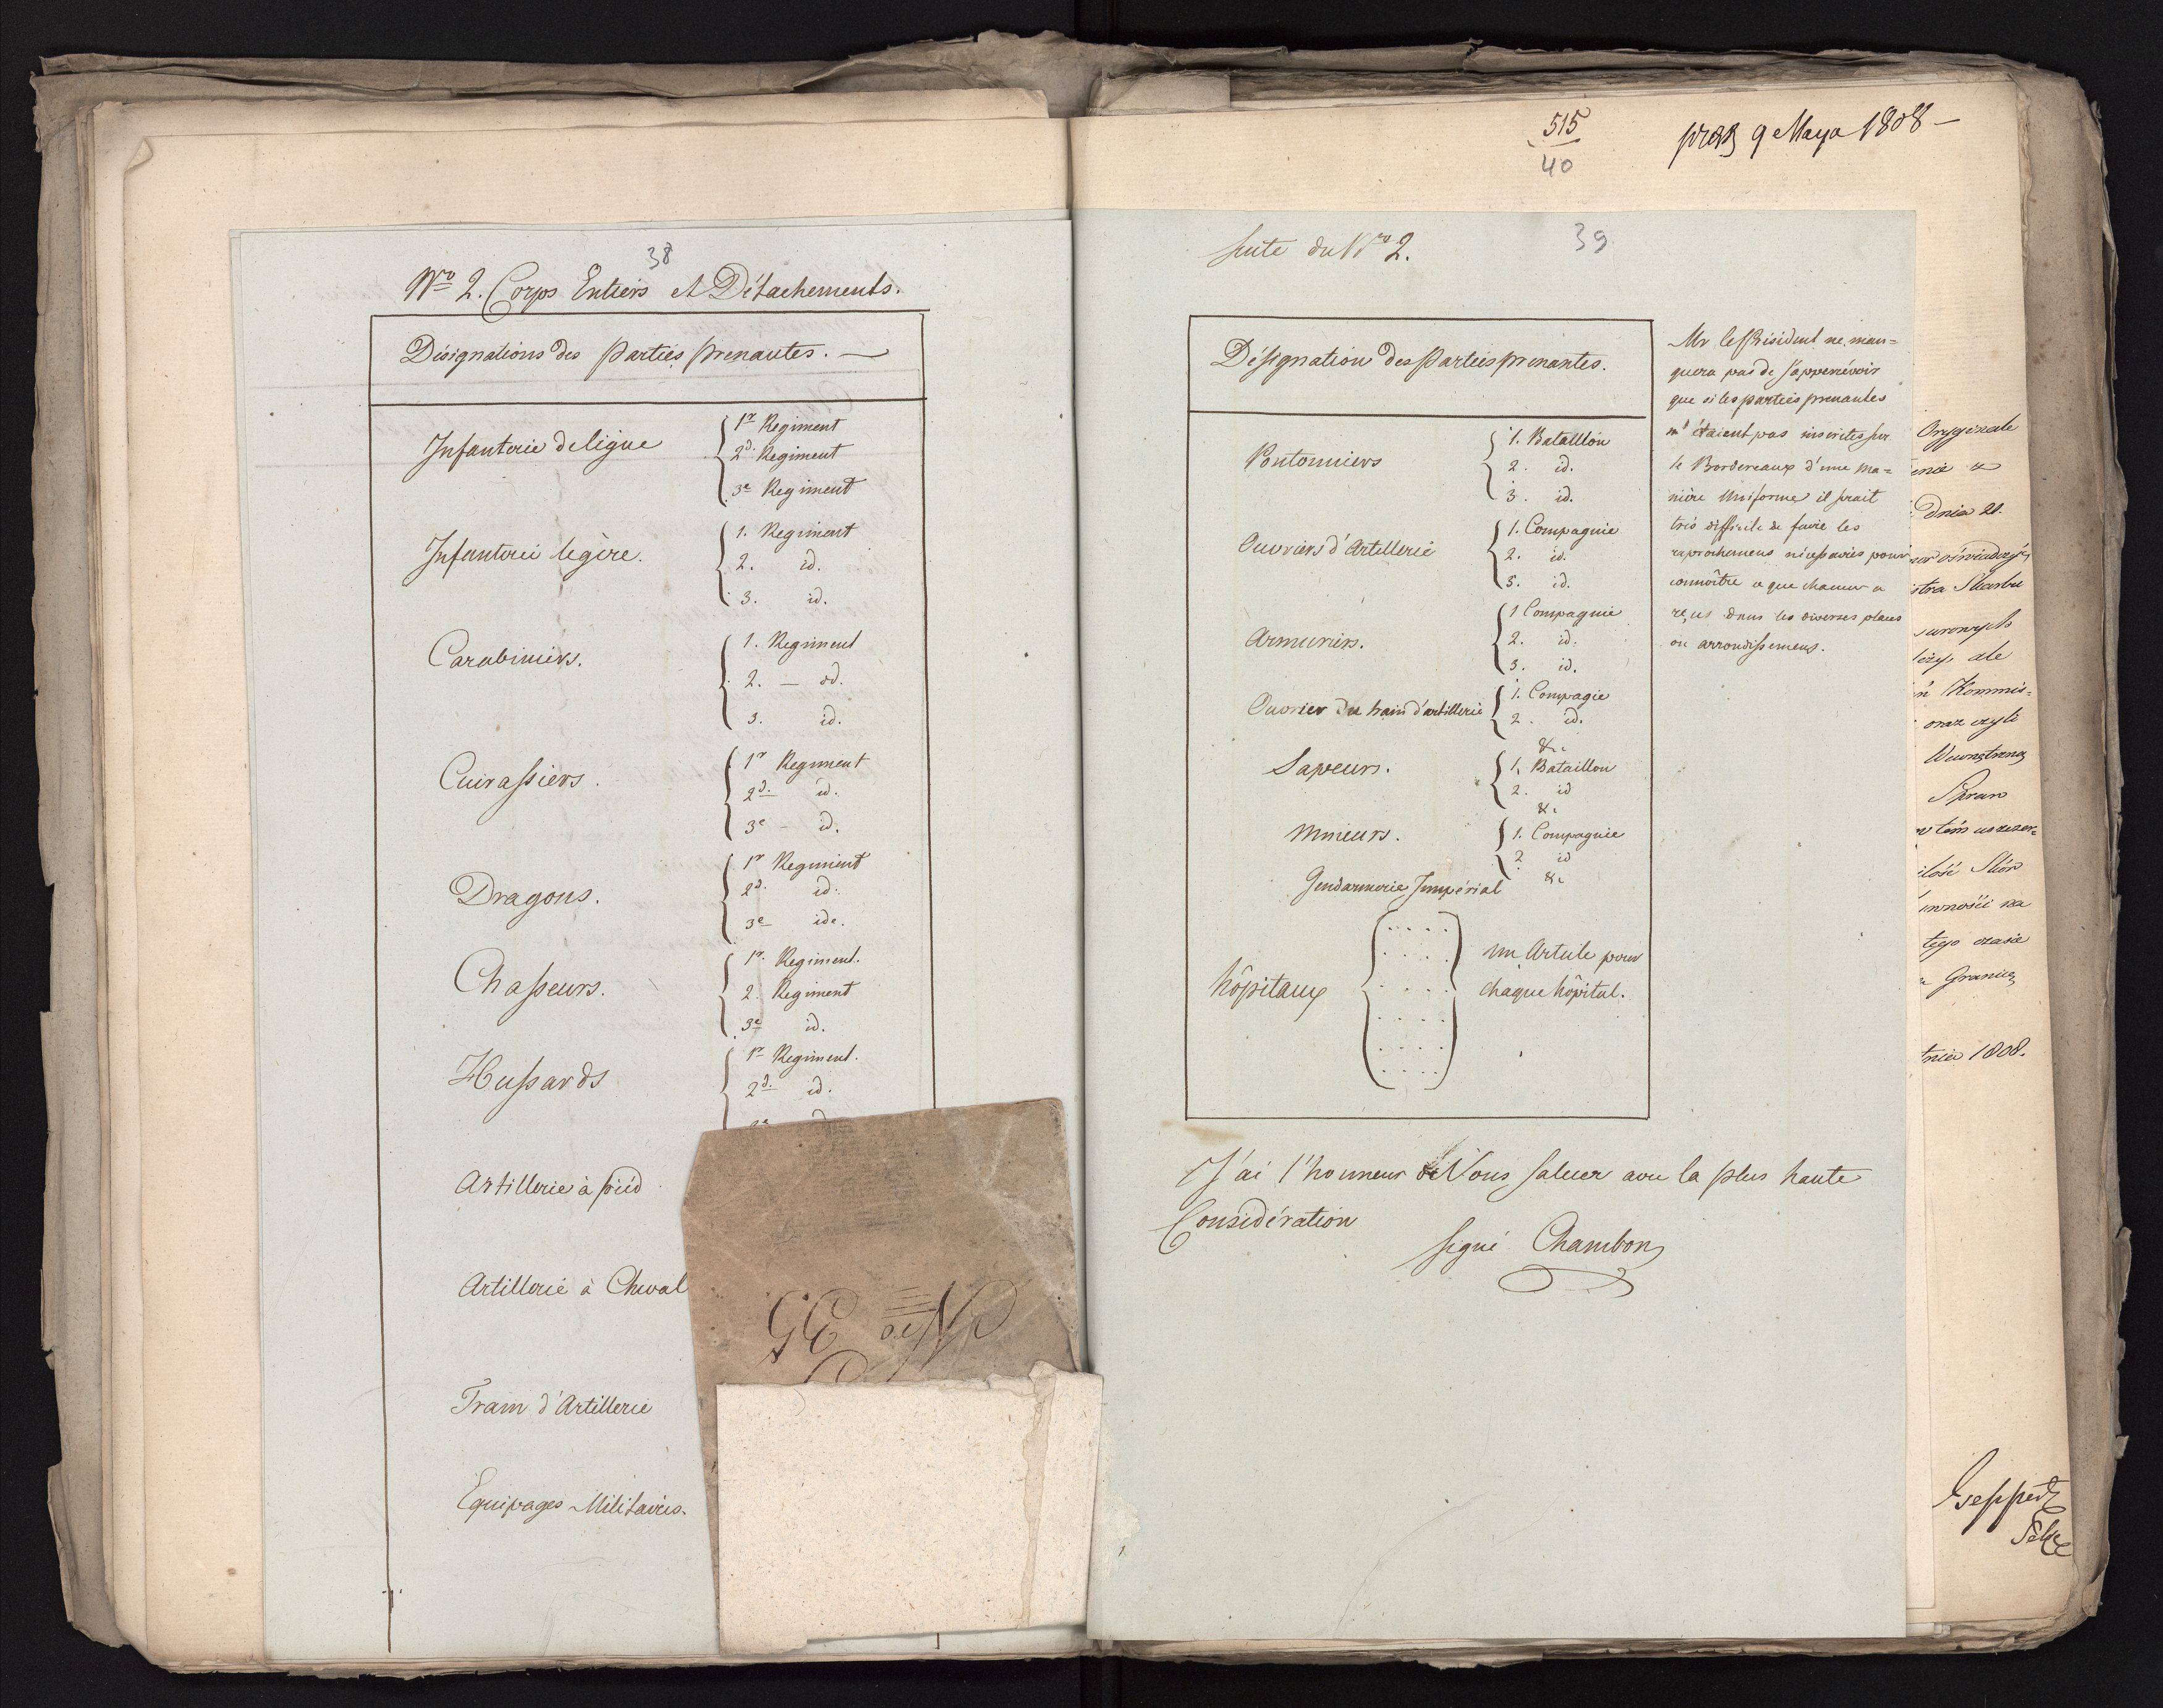 38
Nro 2. Corps Entiers et Détachements.
Désignations des Parties prenantes. —
Infanterie de ligne
1r Regiment
2d. Regiment
3e Regiment
Infanterie legère.
1. Regiment
2. id.
3. id.
Carabiniers.
1. Regiment
2. — id.
3. id.
Cuirassiers.
1r Regiment
2d. id.
3e - id.
Dragons.
1r Regiment
2d. id.
3e ide.
Chasseurs.
1r. Regiment.
2. Regiment
3e id.
Hussards
1r Regiment.
2d. id.
Artillerie à pied
Artillerie à Cheval
Train d'Artillerie
Equipages Militaires.
515
40
9 Maja 1808 —
Suite du Nro 2.
39
Désignation des Parties prenantes.
Pontonniers
1. Bataillon
2. id.
3. id.
Ouvriers d'Artillerie
1. Compagnie
2. id.
3. id.
Armuriers.
1 Compagnie
2. id.
3. id.
Ouvrier du train d'artillerie
1. Compagie
2. id.
&c
Sapeurs.
1. Bataillon
2. id
&c
Mineurs.
1. Compagnie
2 id
&c
Gendarmerie Impérial
hôpitaux
un Article pour
chaque hôpital.
Mr le Président ne man=
quera pas de s'appercévoir
que si les parties prenantes
n'étaient pas inscrites sur
le Bordereaux d'une ma=
nière Uniforme il serait
très difficile de faire les
raprochemens nécessaires pour
connoître ce que chacun a
reçus dans les diverses places
ou arrondissemens.
J'ai l'honneur de Vous saluer avec la plus haute
Considération
signé Chambon
Oryginale
Dnia 21.
Skarbu
ale
Kommis=
oraz czyli
Wewnętrzną
Spraw
Skór
tego czasie
Granicę
1808.